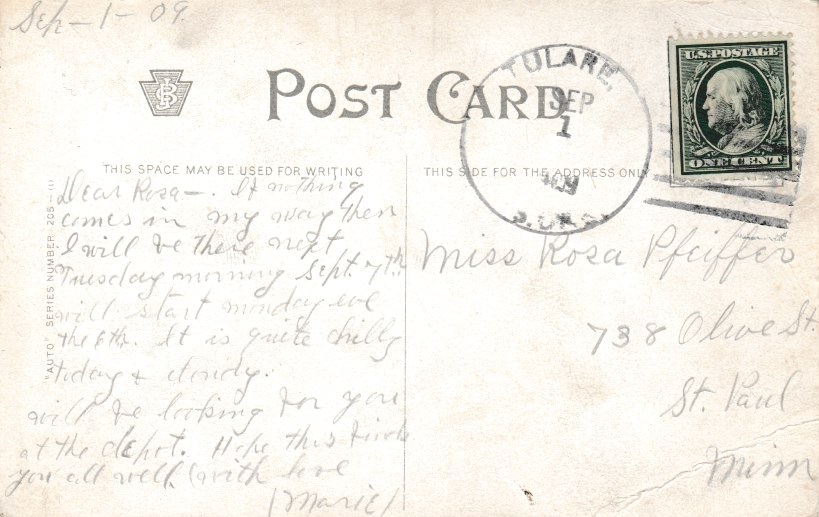 Sep-1-09.
POST CARD
TULARE,
SEP
1
1909
S. DAK.
U.S. POSTAGE
ONE CENT
THIS SPACE MAY BE USED FOR WRITING
THIS SIDE FOR THE ADDRESS ONLY
"AUTO" SERIES NUMBER 205-III
Dear Rosa-. If nothing
comes in my way then
I will be there next
Tuesday morning Sept. 7th.
will start monday eve
the 6th. It is quite chilly
today & cloudy.
will be looking for you
at the depot. Hope this finds
you all well. with love
(Marie)
Miss Rosa Pfeiffer
738 Olive St.
St. Paul
Minn